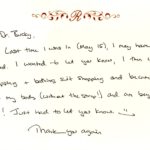 R
Dr. Becky,
Last time I was in (May 15), I may have
I wanted to let you know, I then
& bathing suit shopping and became
my body (what the bump!) and on
! Just had to let you know
Thank you again